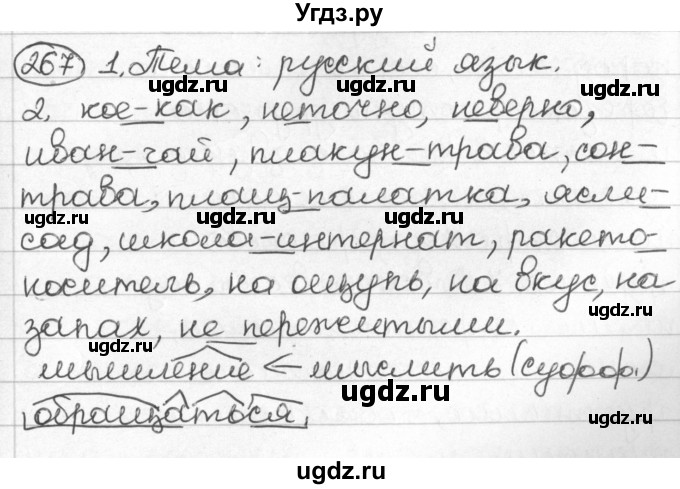 Угдз.ру
267 1. Тема: русский язык.
2. кое-как, неточно, неверно,
иван-чай, плакун-трава, сон-
трава, плащ-палатка, ясли-
сад, школа-интернат, ракето-
носитель, на ощупь, на вкус, на
запах, не пережитыми.
мышление < мыслить (суфф.)
обращаться.
ugdz.ru
ugdz.ru
ugdz.ru
ugdz.ru
ugdz.ru
ugdz.ru
ugdz.ru
ugdz.ru
ugdz.ru
ugdz.ru
ugdz.ru
ugdz.ru
ugdz.ru
ugdz.ru